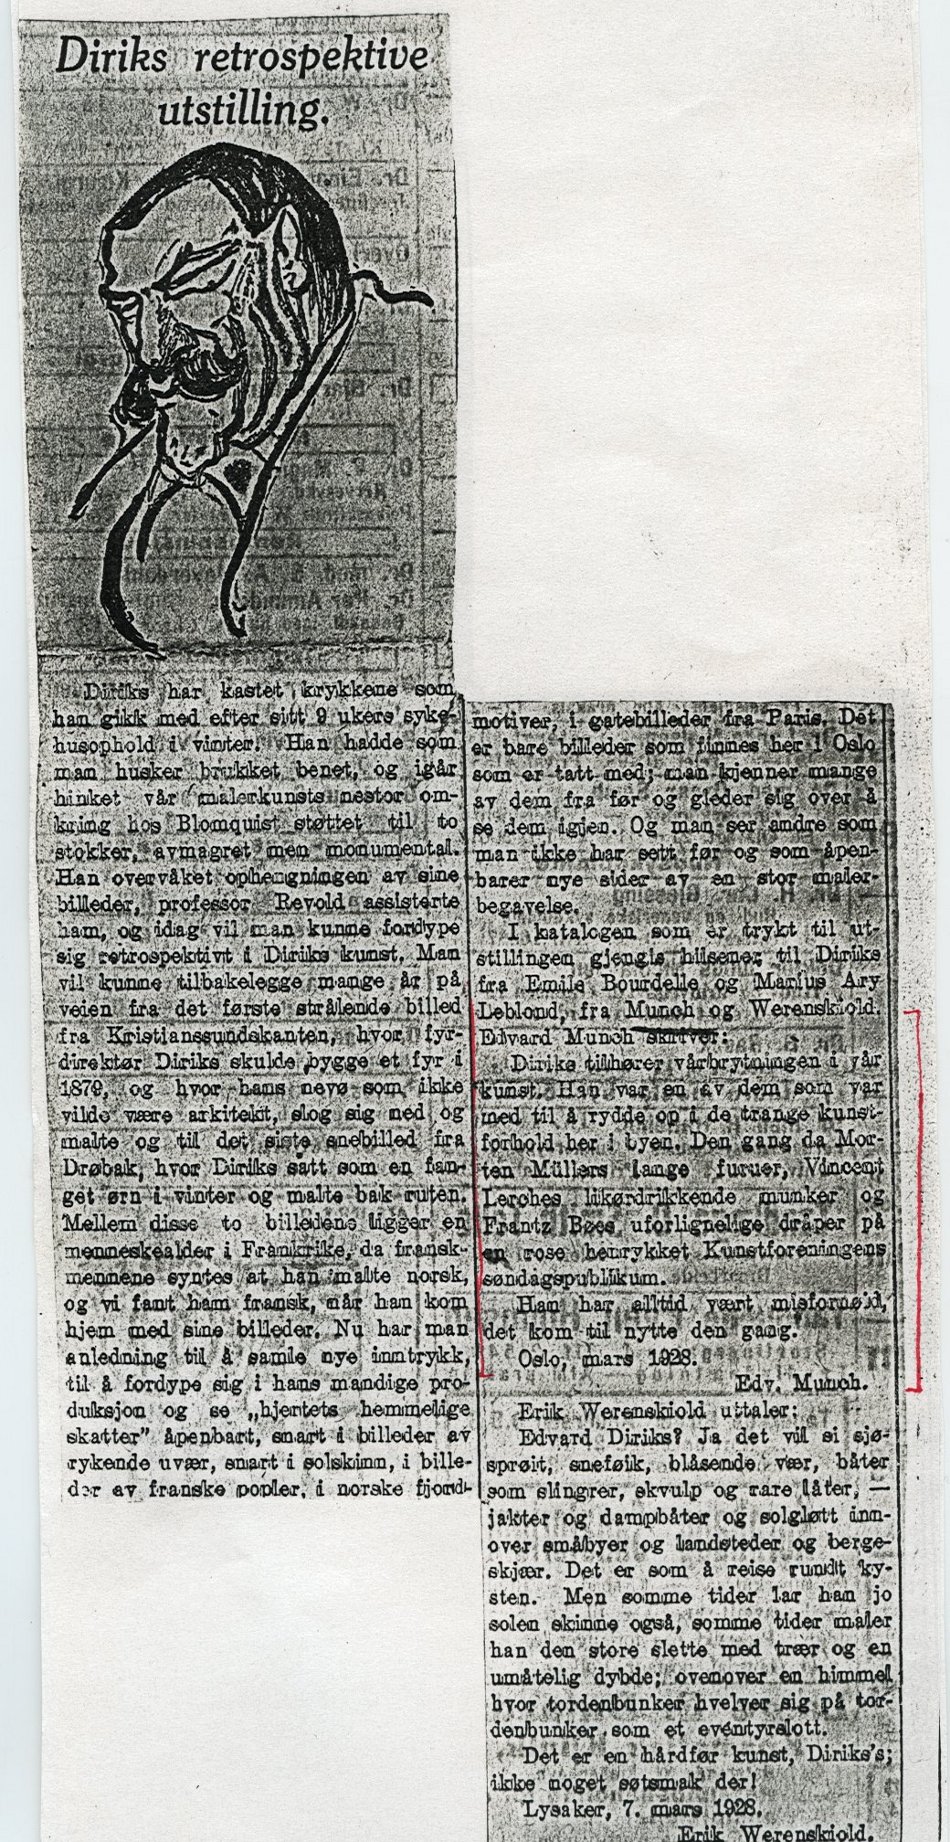 Diriks retrospektive
utstilling.
Diriks har kastet krykkene som
han gikk med efter sitt 9 ukers syke-
husophold i vinter. Han hadde som
man husker brukket benet, og igår
hinket vår malerkunsts nestor om-
kring hos Blomquist støttet til to
stokker, avmagret men monumental.
Han overvåket ophengningen av sine
billeder, professor Revold assisterte
ham, og idag vil man kunne fordype
sig retrospektivt i Diriks kunst. Man
vil kunne tilbakelegge mange år på
veien fra det første strålende billed
fra Kristianssundskanten, hvor fyr-
direktør Diriks skulde bygge et fyr i
1879, og hvor hans nevø som ikke
vilde være arkitekt, slog sig ned og
malte og til det siste snebilled fra
Drøbak, hvor Diriks satt som en fan-
get ørn i vinter og malte bak ruten.
Mellem disse to billedene ligger en
menneskealder i Frankrike, da fransk-
mennene syntes at han malte norsk,
og vi fant ham fransk, når han kom
hjem med sine billeder. Nu har man
anledning til å samle nye inntrykk,
til å fordype sig i hans mandige pro-
duksjon og se „hjertets hemmelige
skatter” åpenbart, snart i billeder av
rykende uvær, snart i solskinn, i bille-
der av franske popler, i norske fjord-
motiver, i gatebilleder fra Paris. Det
er bare billeder som finnes her i Oslo
som er tatt med; man kjenner mange
av dem fra før og gleder sig over å
se dem igjen. Og man ser andre som
man ikke har sett før og som åpen-
barer nye sider av en stor maler-
begavelse.
I katalogen som er trykt til ut-
stillingen gjengis hilsener til Diriks
fra Emile Bourdelle og Marius Ary
Leblond, fra Munch og Werenskiold.
Edvard Munch skriver:
Diriks tilhører vårbrytningen i vår
kunst. Han var en av dem som var
med til å rydde op i de trange kunst-
forhold her i byen. Den gang da Mor-
ten Müllers lange furuer, Vincent
Lerches likørdrikkende munker og
Frantz Bøes uforlignelige dråper på
en rose henrykket Kunstforeningens
søndagspublikum.
Han har alltid vært misfornøid,
det kom til nytte den gang.
Oslo, mars 1928.
Edv. Munch.
Erik Werenskiold uttaler:
Edvard Diriks? Ja det vil si sjø-
sprøit, sneføik, blåsende vær, båter
som slingrer, skvulp og rare låter, —
jakter og dampbåter og solgløtt inn-
over småbyer og landsteder og berge-
skjær. Det er som å reise rundt ky-
sten. Men somme tider lar han jo
solen skinne også, somme tider maler
han den store slette med trær og en
umåtelig dybde; ovenover en himmel
hvor tordenbunker hvelver sig på tor-
denbunker som et eventyrslott.
Det er en hårdfør kunst, Diriks's;
ikke noget søtsmak der!
Lysaker, 7. mars 1928.
Erik Werenskiold.